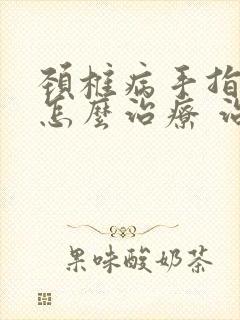 頚椎病手指
怎麼治療 治
果味酸奶茶